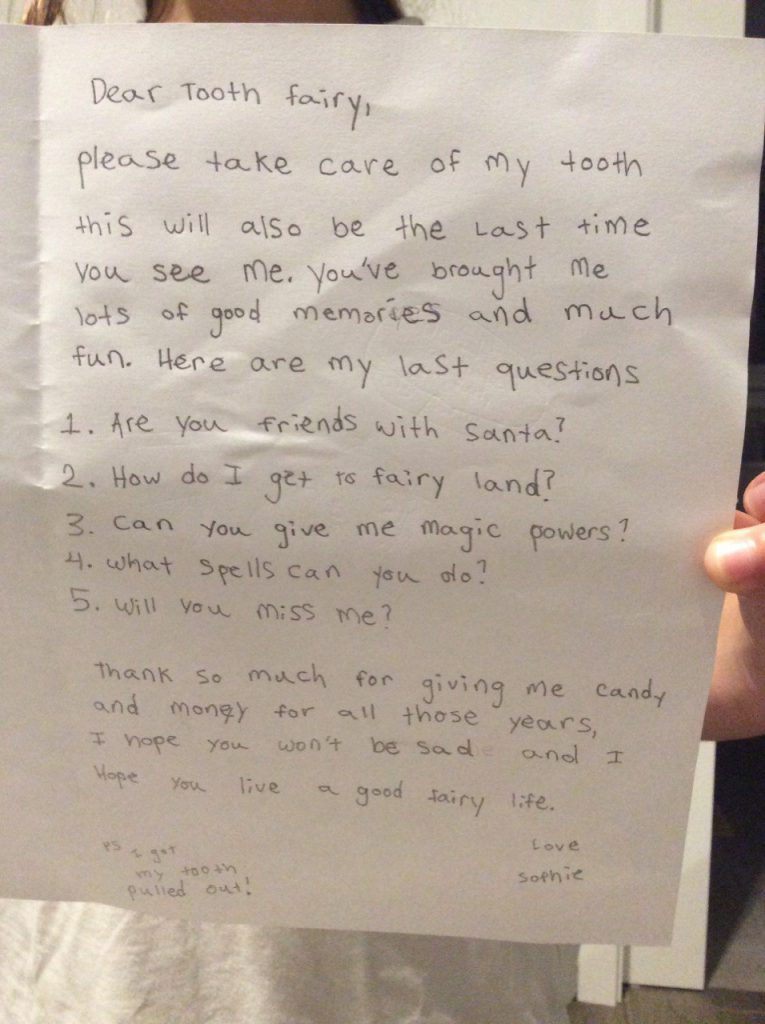 Dear Tooth fairy,
please take care of my tooth
this will also be the Last time
you see me. you've brought me
lots of good memories and much
fun. Here are my last questions
1. Are you friends with Santa?
2. How do I get to fairy land?
3. Can you give me magic powers?
4. What spells can you do?
5. Will you miss me?
Thank so much for giving me candy
and money for all those years,
I hope you won't be sad and I
Hope you live a good fairy life.
PS I got
my tooth
pulled out!
Love
Sophie